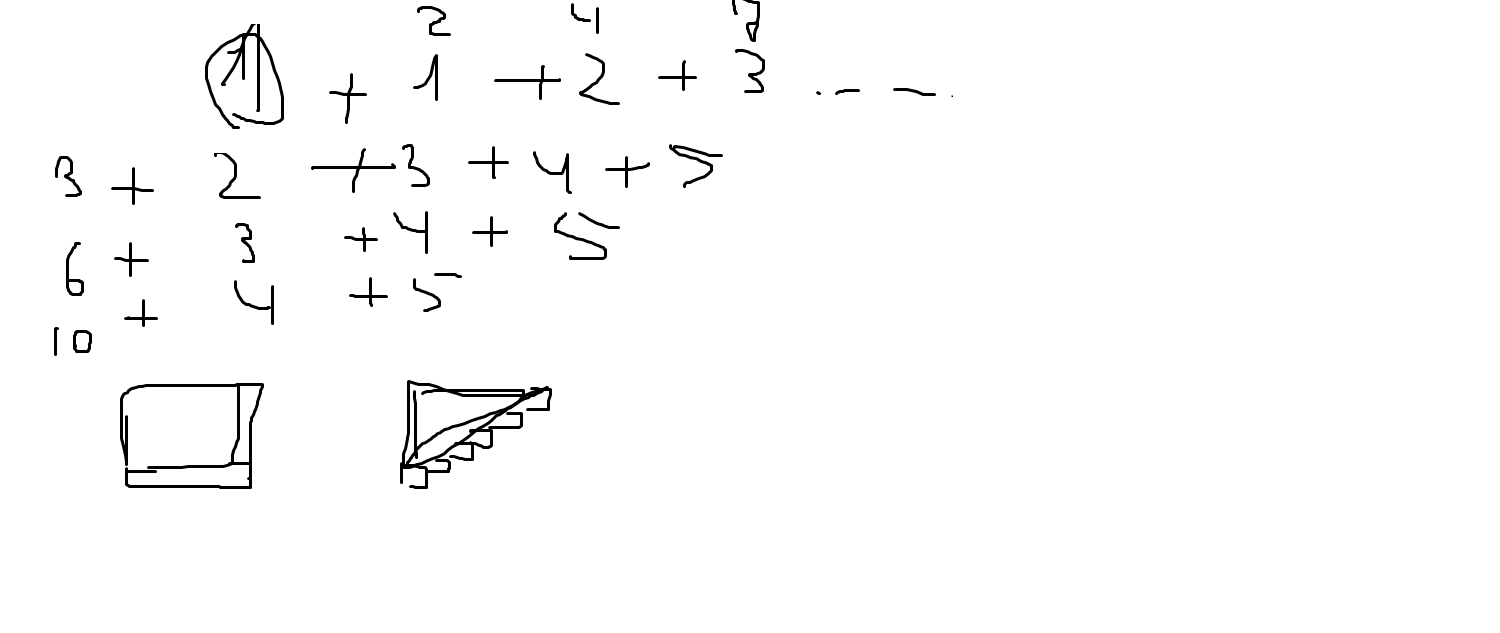 2 4 7
1 + 1 + 2 + 3 . - -
3 + 2 + 3 + 4 + 5
6 + 3 + 4 + 5
10 + 4 + 5